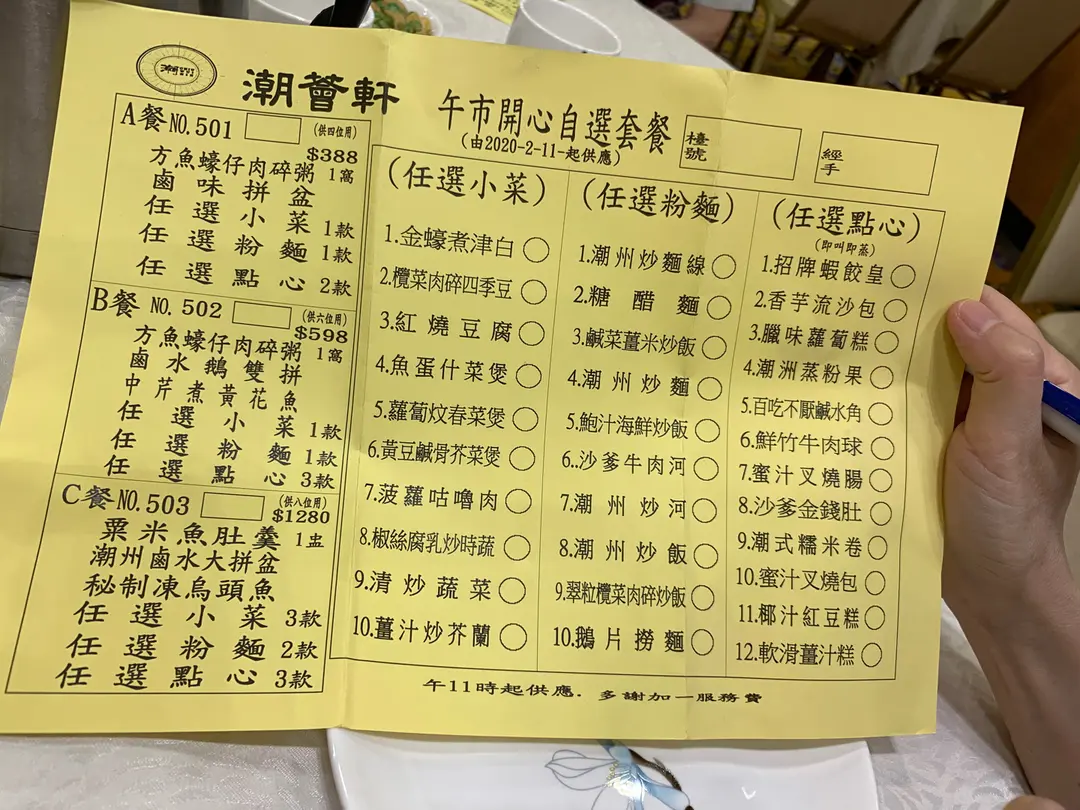 潮薈軒
午市開心自選套餐
(由2020-2-11-起供應)
檯號
經手
A餐 NO.501 (供四位用)
$388
方魚蠔仔肉碎粥 1窩
鹵味拼盆
任選小菜 1款
任選粉麵 1款
任選點心 2款
B餐 NO.502 (供六位用)
$598
方魚蠔仔肉碎粥 1窩
鹵水鵝雙拼
中芹煮黃花魚
任選小菜 1款
任選粉麵 1款
任選點心 3款
C餐 NO.503 (供八位用)
$1280
粟米魚肚羹 1盅
潮州鹵水大拼盆
秘制凍烏頭魚
任選小菜 3款
任選粉麵 2款
任選點心 3款
(任選小菜)
1.金蠔煮津白
2.欖菜肉碎四季豆
3.紅燒豆腐
4.魚蛋什菜煲
5.蘿蔔炆春菜煲
6.黃豆鹹骨芥菜煲
7.菠蘿咕嚕肉
8.椒絲腐乳炒時蔬
9.清炒蔬菜
10.薑汁炒芥蘭
(任選粉麵)
1.潮州炒麵線
2.糖醋麵
3.鹹菜薑米炒飯
4.潮州炒麵
5.鮑汁海鮮炒飯
6..沙爹牛肉河
7.潮州炒河
8.潮州炒飯
9.翠粒欖菜肉碎炒飯
10.鵝片撈麵
(任選點心)
(即叫即蒸)
1.招牌蝦餃皇
2.香芋流沙包
3.臘味蘿蔔糕
4.潮洲蒸粉果
5.百吃不厭鹹水角
6.鮮竹牛肉球
7.蜜汁叉燒腸
8.沙爹金錢肚
9.潮式糯米卷
10.蜜汁叉燒包
11.椰汁紅豆糕
12.軟滑薑汁糕
午11時起供應．多謝加一服務費